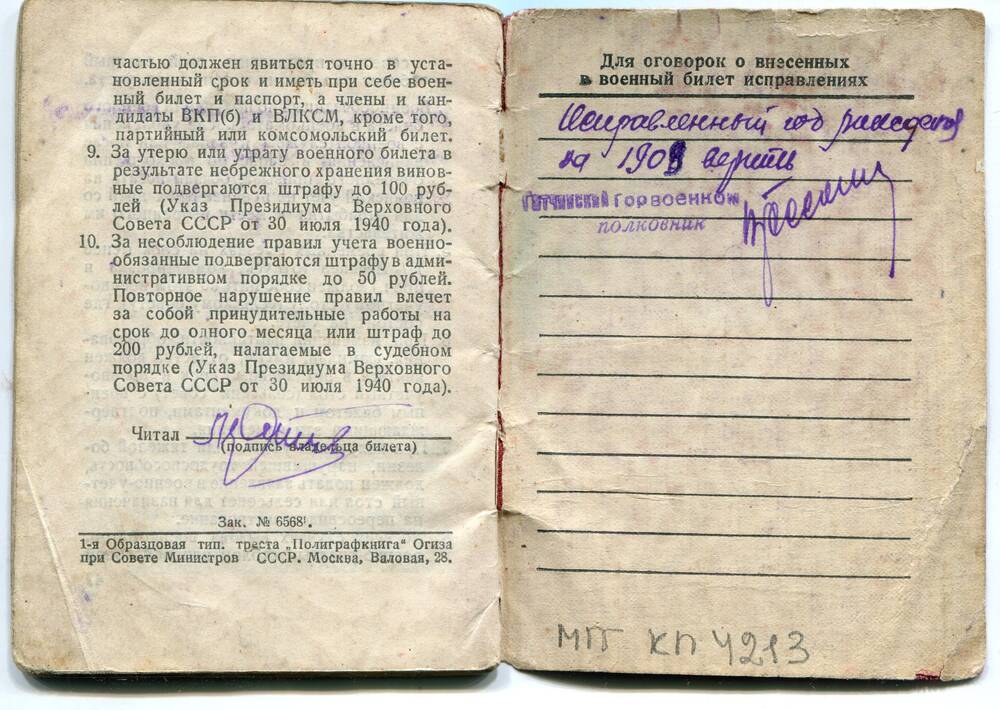 частью должен явиться точно в уста-
новленный срок и иметь при себе воен-
ный билет и паспорт, а члены и кан-
дидаты ВКП(б) и ВЛКСМ, кроме того,
партийный или комсомольский билет.
9. За утерю или утрату военного билета в
результате небрежного хранения винов-
ные подвергаются штрафу до 100 руб-
лей (Указ Президиума Верховного
Совета СССР от 30 июля 1940 года).
10. За несоблюдение правил учета военно-
обязанные подвергаются штрафу в адми-
нистративном порядке до 50 рублей.
Повторное нарушение правил влечет
за собой принудительные работы на
срок до одного месяца или штраф до
200 рублей, налагаемые в судебном
порядке (Указ Президиума Верховного
Совета СССР от 30 июля 1940 года).
Читал
(подпись владельца билета)
Зак. № 6568
1-я Образцовая тип. треста „Полиграфкнига" Огиза
при Совете Министров СССР. Москва, Валовая, 28.
Для оговорок о внесенных
в военный билет исправлениях
Исправленный год рождения
на 1903 верить
Гатчинский горвоенком
полковник
МП КП 4213